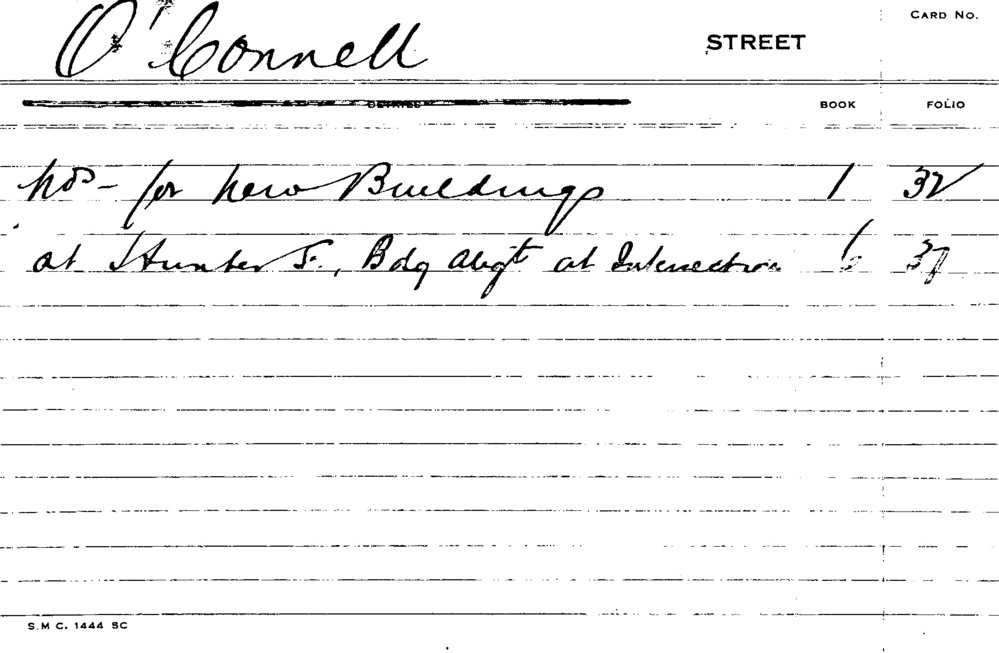 CARD No.
O'Connell STREET
BOOK FOLIO
Nos - for New Buildings 1 32
at Hunter St., Bdg Aligt at Intersection 6 37
S.M.C. 1444 SC